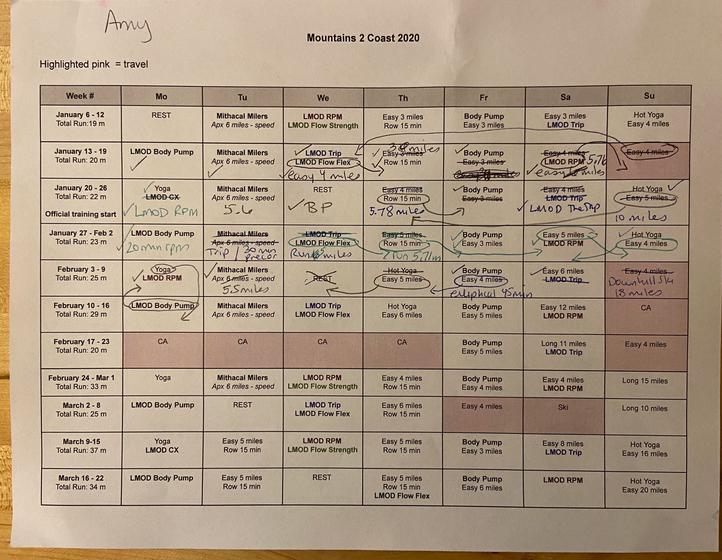 Amy
Mountains 2 Coast 2020
Highlighted pink = travel
Week # Mo Tu We Th Fr Sa Su
January 6 - 12
Total Run:19 m
REST
Mithacal Milers
Apx 6 miles - speed
LMOD RPM
LMOD Flow Strength
Easy 3 miles
Row 15 min
Body Pump
Easy 3 miles
Easy 3 miles
LMOD Trip
Hot Yoga
Easy 4 miles
January 13 - 19
Total Run: 20 m
LMOD Body Pump
Mithacal Milers
Apx 6 miles - speed
LMOD Trip
LMOD Flow Flex
easy 4 miles
miles
Easy 3 miles
Row 15 min
Body Pump
Easy 3 miles
Easy 4 miles
LMOD RPM 5.76
easy miles
Easy 4 miles
January 20 - 26
Total Run: 22 m
Official training start
Yoga
LMOD CX
LMOD RPM
Mithacal Milers
Apx 6 miles - speed
5.6
REST
BP
Easy 4 miles
Row 15 min
5.78 miles
Body Pump
Easy 3 miles
Easy 4 miles
LMOD Trip
LMOD The Trip
Hot Yoga
Easy 5 miles
10 miles
January 27 - Feb 2
Total Run: 23 m
LMOD Body Pump
20 min rpm
Mithacal Milers
Apx 6 miles - speed
Trip / 30 min
precor
LMOD Trip
LMOD Flow Flex
Run miles
Easy 5 miles
Row 15 min
Run 5.71m
Body Pump
Easy 3 miles
Easy 5 miles
LMOD RPM
Hot Yoga
Easy 4 miles
February 3 - 9
Total Run: 25 m
Yoga
LMOD RPM
Mithacal Milers
Apx 6 miles - speed
5.5 miles
REST
Hot Yoga
Easy 5 miles
Body Pump
Easy 4 miles
elliptical 45 min
Easy 6 miles
LMOD Trip
Easy 4 miles
Downhill Ski
18 miles
February 10 - 16
Total Run: 29 m
LMOD Body Pump
Mithacal Milers
Apx 6 miles - speed
LMOD Trip
LMOD Flow Flex
Hot Yoga
Easy 6 miles
Body Pump
Easy 5 miles
Easy 12 miles
LMOD RPM
CA
February 17 - 23
Total Run: 20 m
CA
CA
CA
CA
Body Pump
Easy 5 miles
Long 11 miles
LMOD Trip
Easy 4 miles
February 24 - Mar 1
Total Run: 33 m
Yoga
Mithacal Milers
Apx 6 miles - speed
LMOD RPM
LMOD Flow Strength
Easy 4 miles
Row 15 min
Body Pump
Easy 4 miles
Easy 4 miles
LMOD RPM
Long 15 miles
March 2 - 8
Total Run: 25 m
LMOD Body Pump
REST
LMOD Trip
LMOD Flow Flex
Easy 6 miles
Row 15 min
Easy 4 miles
Ski
Long 10 miles
March 9-15
Total Run: 37 m
Yoga
LMOD CX
Easy 5 miles
Row 15 min
LMOD RPM
LMOD Flow Strength
Easy 5 miles
Row 15 min
Body Pump
Easy 3 miles
Easy 8 miles
LMOD Trip
Hot Yoga
Easy 16 miles
March 16 - 22
Total Run: 34 m
LMOD Body Pump
Easy 5 miles
Row 15 min
REST
Easy 5 miles
Row 15 min
LMOD Flow Flex
Body Pump
Easy 6 miles
LMOD RPM
Hot Yoga
Easy 20 miles